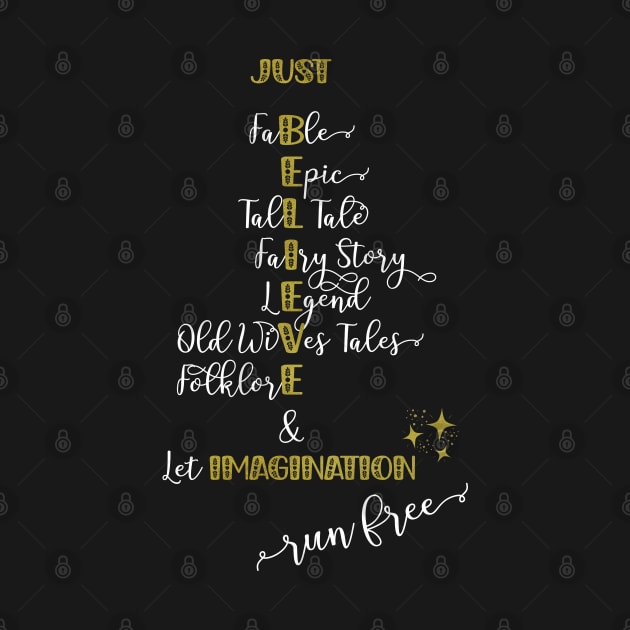 JUST
FaBle
Epic
Tall Tale
FaIry Story
LEgend
Old WiVes Tales
FolklorE
&
Let IMAGINATION
run free